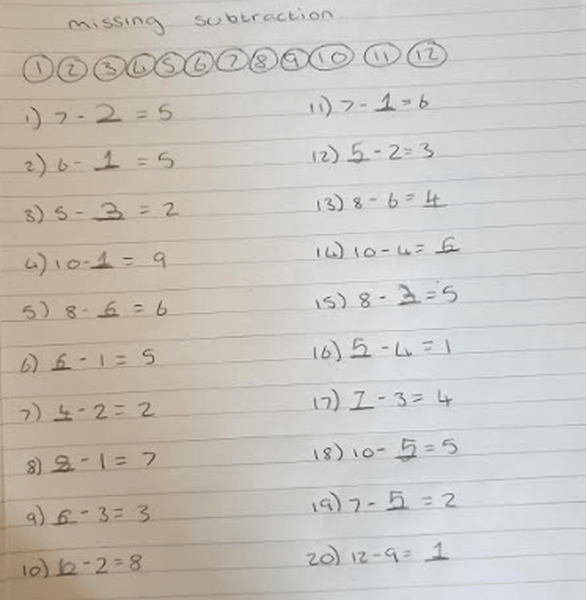 missing subtraction
1 2 3 4 5 6 7 8 9 10 11 12
1) 7 - 2 = 5
2) 6 - 1 = 5
3) 5 - 3 = 2
4) 10 - 1 = 9
5) 8 - 6 = 6
6) 6 - 1 = 5
7) 4 - 2 = 2
8) 8 - 1 = 7
9) 6 - 3 = 3
10) 10 - 2 = 8
11) 7 - 1 = 6
12) 5 - 2 = 3
13) 8 - 6 = 4
14) 10 - 4 = 6
15) 8 - 3 = 5
16) 5 - 4 = 1
17) 7 - 3 = 4
18) 10 - 5 = 5
19) 7 - 5 = 2
20) 12 - 9 = 1